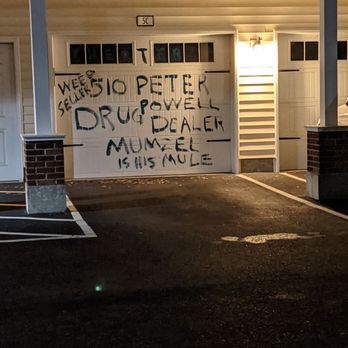 5C
WEED
SELLER
510 PETER
POWELL
DRUG DEALER
MUMZEL
IS HIS MULE